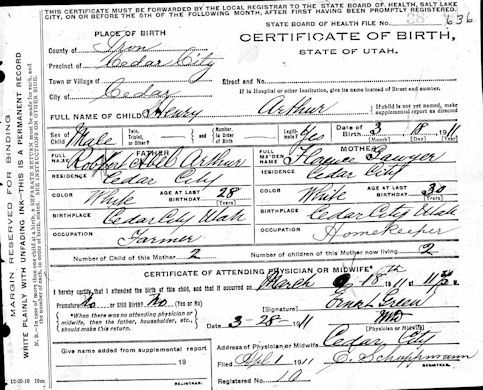 THIS CERTIFICATE MUST BE FORWARDED BY THE LOCAL REGISTRAR TO THE STATE BOARD OF HEALTH, SALT LAKE
CITY, ON OR BEFORE THE 5TH OF THE FOLLOWING MONTH, AFTER FIRST HAVING BEEN PROMPTLY REGISTERED.
STATE BOARD OF HEALTH FILE No. 636
PLACE OF BIRTH
CERTIFICATE OF BIRTH,
STATE OF UTAH.
County of Iron
Precinct of Cedar City
Town or Village of
Street and No.
City of Cedar
If in Hospital or other Institution, give its name instead of Street and number.
FULL NAME OF CHILD Henry Arthur
If child is not yet named, make supplemental report as directed
Sex of Child Male
Twin, Triplet, or Other?
and
Number, in Order of Birth
Legitimate? Yes
Date of Birth 3 18 1911
(Month) (Day) (Year)
FATHER
MOTHER
FULL NAME Arthur
FULL MAIDEN NAME Florence Sawyer
RESIDENCE Cedar City
RESIDENCE Cedar City
COLOR White
AGE AT LAST BIRTHDAY 28 (Years)
COLOR White
AGE AT LAST BIRTHDAY 30 (Years)
BIRTHPLACE Cedar City Utah
BIRTHPLACE Cedar City Utah
OCCUPATION Farmer
OCCUPATION Homekeeper
Number of Child of this Mother 2
Number of children of this Mother now living 2
CERTIFICATE OF ATTENDING PHYSICIAN OR MIDWIFE*
I hereby certify that I attended the birth of this child, and that it occurred on March 18th 1911 at 11
Premature? No or Still Birth? No (Yes or No)
(Signature)
Green
*When there was no attending physician or midwife, then the father, householder, etc., should make this return.
Date 3-28-1911
(Physician or Midwife)
Address of Physician or Midwife Cedar City
Given name added from supplemental report
19
Filed Apl 1 1911
REGISTRAR.
REGISTRAR.
Registered No. 10
12-20-10 10m
MARGIN RESERVED FOR BINDING
WRITE PLAINLY WITH UNFADING INK—THIS IS A PERMANENT RECORD